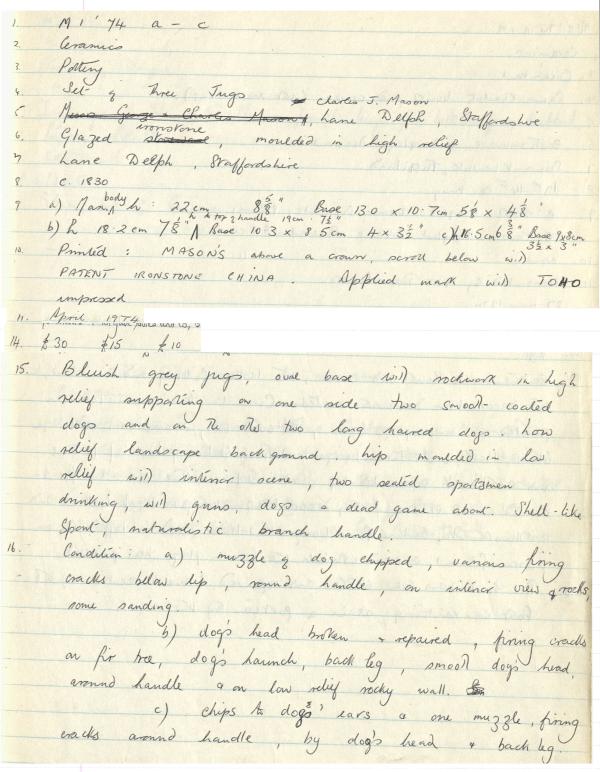 1. M1 '74 a - c
2. Ceramics
3. Pottery
4. Set of Three Jugs
5 Messrs George & Charles Mason, Charles J. Mason Lane Delph, Staffordshire
6. Glazed stoneware ironstone, moulded in high relief
7 Lane Delph, Staffordshire
8. c. 1830
9 a) Max body h: 22 cm 8 5/8" Base 13.0 x 10.7cm 5 1/8 x 4 1/8"
b) h 18.2cm 7 1/8" h to top of handle 19cm: 7 1/2" Base 10.3 x 8.5cm 4 x 3 1/2" c) h 16.5cm 6 3/8" Base 9x8cm 3 1/2 x 3"
10. Printed: MASON'S above a crown, scroll below with
PATENT IRONSTONE CHINA. Applied mark, with TOHO
impressed
11. April 1974
14. £30 £15 £10
15. Bluish grey jugs, oval base with rockwork in high
relief supporting on one side two smooth-coated
dogs and on the other two long haired dogs. Low
relief landscape background lip moulded in low
relief with interior scene, two seated sportsmen
drinking, with guns, dogs & dead game about. Shell-like
spout, naturalistic branch handle.
16. Condition: a) muzzle of dog chipped, various firing
cracks below lip, round handle, on interior view & rocks,
some sanding.
b) dog's head broken & repaired, firing cracks
on fir tree, dog's haunch, back leg, smooth dog's head,
around handle & on low relief rocky wall.
c) chips to dogs' ears & one muzzle, firing
cracks around handle, by dog's head & back leg.